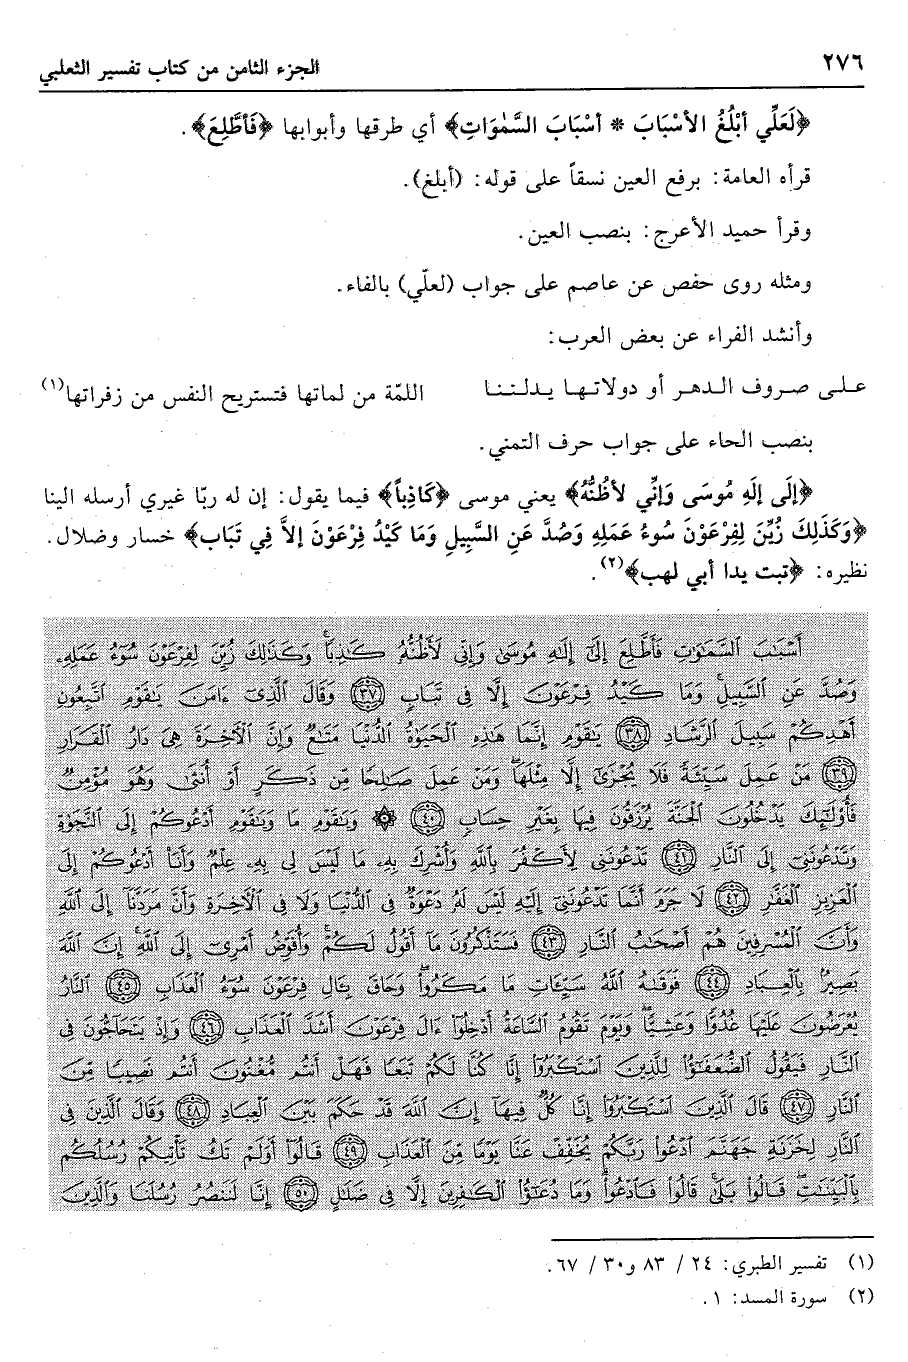 ٢٧٦ الجزء الثامن من كتاب تفسير الثعلبي
﴿لَعَلِّي أَبْلُغُ الأَسْبَابَ * أَسْبَابَ السَّمٰوَاتِ﴾ أي طرقها وأبوابها ﴿فَأَطَّلِعَ﴾.
قرأه العامة: برفع العين نسقاً على قوله: (أبلغ).
وقرأ حميد الأعرج: بنصب العين.
ومثله روى حفص عن عاصم على جواب (لعلّي) بالفاء.
وأنشد الفراء عن بعض العرب:
على صروف الدهر أو دولاتها يدلننا اللمّة من لماتها فتستريح النفس من زفراتها(١)
بنصب الحاء على جواب حرف التمني.
﴿إِلَى إِلَهِ مُوسَى وَإِنِّي لأَظُنُّهُ﴾ يعني موسى ﴿كَاذِباً﴾ فيما يقول: إن له ربّا غيري أرسله الينا
﴿وَكَذَلِكَ زُيِّنَ لِفِرْعَوْنَ سُوءُ عَمَلِهِ وَصُدَّ عَنِ السَّبِيلِ وَمَا كَيْدُ فِرْعَوْنَ إلاَّ فِي تَبَاب﴾ خسار وضلال.
نظيره: ﴿تبت يدا أبي لهب﴾(٢).
أَسْبَٰبَ ٱلسَّمَٰوَٰتِ فَأَطَّلِعَ إِلَىٰٓ إِلَٰهِ مُوسَىٰ وَإِنِّي لَأَظُنُّهُۥ كَٰذِبًا ۚ وَكَذَٰلِكَ زُيِّنَ لِفِرْعَوْنَ سُوٓءُ عَمَلِهِۦ
وَصُدَّ عَنِ ٱلسَّبِيلِ ۚ وَمَا كَيْدُ فِرْعَوْنَ إِلَّا فِي تَبَابٍ ﴿٣٧﴾ وَقَالَ ٱلَّذِيٓ ءَامَنَ يَٰقَوْمِ ٱتَّبِعُونِ
أَهْدِكُمْ سَبِيلَ ٱلرَّشَادِ ﴿٣٨﴾ يَٰقَوْمِ إِنَّمَا هَٰذِهِ ٱلْحَيَوٰةُ ٱلدُّنْيَا مَتَٰعٌ وَإِنَّ ٱلْأَخِرَةَ هِيَ دَارُ ٱلْقَرَارِ
﴿٣٩﴾ مَنْ عَمِلَ سَيِّئَةً فَلَا يُجْزَىٰٓ إِلَّا مِثْلَهَا ۖ وَمَنْ عَمِلَ صَٰلِحًا مِّن ذَكَرٍ أَوْ أُنثَىٰ وَهُوَ مُؤْمِنٌ
فَأُو۟لَٰٓئِكَ يَدْخُلُونَ ٱلْجَنَّةَ يُرْزَقُونَ فِيهَا بِغَيْرِ حِسَابٍ ﴿٤٠﴾ ۞ وَيَٰقَوْمِ مَا وَيَٰقَوْمِ أَدْعُوكُمْ إِلَى ٱلنَّجَوٰةِ
وَتَدْعُونَنِيٓ إِلَى ٱلنَّارِ ﴿٤١﴾ تَدْعُونَنِي لِأَكْفُرَ بِٱللَّهِ وَأُشْرِكَ بِهِۦ مَا لَيْسَ لِي بِهِۦ عِلْمٌ وَأَنَا۠ أَدْعُوكُمْ إِلَى
ٱلْعَزِيزِ ٱلْغَفَّٰرِ ﴿٤٢﴾ لَا جَرَمَ أَنَّمَا تَدْعُونَنِيٓ إِلَيْهِ لَيْسَ لَهُۥ دَعْوَةٌ فِي ٱلدُّنْيَا وَلَا فِي ٱلْأَخِرَةِ وَأَنَّ مَرَدَّنَآ إِلَى ٱللَّهِ
وَأَنَّ ٱلْمُسْرِفِينَ هُمْ أَصْحَٰبُ ٱلنَّارِ ﴿٤٣﴾ فَسَتَذْكُرُونَ مَآ أَقُولُ لَكُمْ ۚ وَأُفَوِّضُ أَمْرِيٓ إِلَى ٱللَّهِ ۚ إِنَّ ٱللَّهَ
بَصِيرٌۢ بِٱلْعِبَادِ ﴿٤٤﴾ فَوَقَىٰهُ ٱللَّهُ سَيِّـَٔاتِ مَا مَكَرُوا۟ ۖ وَحَاقَ بِـَٔالِ فِرْعَوْنَ سُوٓءُ ٱلْعَذَابِ ﴿٤٥﴾ ٱلنَّارُ
يُعْرَضُونَ عَلَيْهَا غُدُوًّا وَعَشِيًّا ۖ وَيَوْمَ تَقُومُ ٱلسَّاعَةُ أَدْخِلُوٓا۟ ءَالَ فِرْعَوْنَ أَشَدَّ ٱلْعَذَابِ ﴿٤٦﴾ وَإِذْ يَتَحَآجُّونَ فِي
ٱلنَّارِ فَيَقُولُ ٱلضُّعَفَٰٓؤُا۟ لِلَّذِينَ ٱسْتَكْبَرُوٓا۟ إِنَّا كُنَّا لَكُمْ تَبَعًا فَهَلْ أَنتُم مُّغْنُونَ أَنتُم نَصِيبًا مِّنَ
ٱلنَّارِ ﴿٤٧﴾ قَالَ ٱلَّذِينَ ٱسْتَكْبَرُوٓا۟ إِنَّا كُلٌّ فِيهَآ إِنَّ ٱللَّهَ قَدْ حَكَمَ بَيْنَ ٱلْعِبَادِ ﴿٤٨﴾ وَقَالَ ٱلَّذِينَ فِي
ٱلنَّارِ لِخَزَنَةِ جَهَنَّمَ ٱدْعُوا۟ رَبَّكُمْ يُخَفِّفْ عَنَّا يَوْمًا مِّنَ ٱلْعَذَابِ ﴿٤٩﴾ قَالُوٓا۟ أَوَلَمْ تَكُ تَأْتِيكُمْ رُسُلُكُم
بِٱلْبَيِّنَٰتِ ۖ قَالُوا۟ بَلَىٰ ۚ قَالُوا۟ فَٱدْعُوا۟ ۗ وَمَا دُعَٰٓؤُا۟ ٱلْكَٰفِرِينَ إِلَّا فِي ضَلَٰلٍ ﴿٥٠﴾ إِنَّا لَنَنصُرُ رُسُلَنَا وَٱلَّذِينَ
(١) تفسير الطبري: ٢٤ / ٨٣ و٣٠ / ٦٧.
(٢) سورة المسد: ١.